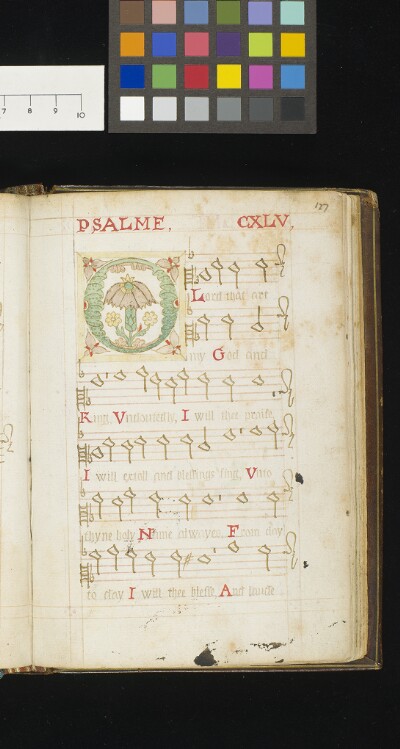 7 8 9 10
137
PSALME, CXLV,
O Lord that art
my God and
King, Undoubtedly, I will thee praise,
I will extoll and blessings sing, Unto
thyne holy Name alwayes, From day
to day I will thee blesse, And laude